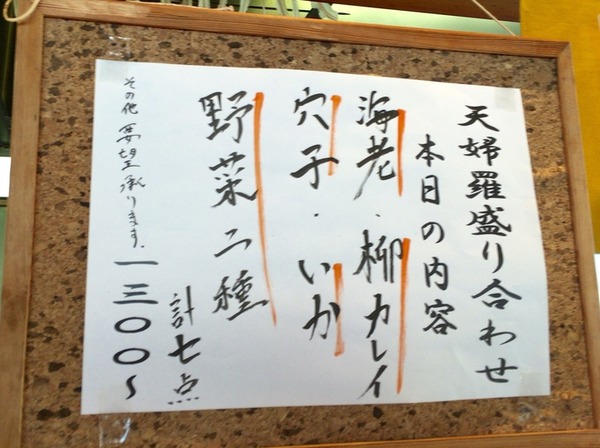 天婦羅盛り合わせ
本日の内容
海老・柳カレイ
穴子・いか
野菜二種
計七点
その他要望承ります。一三〇〇〜